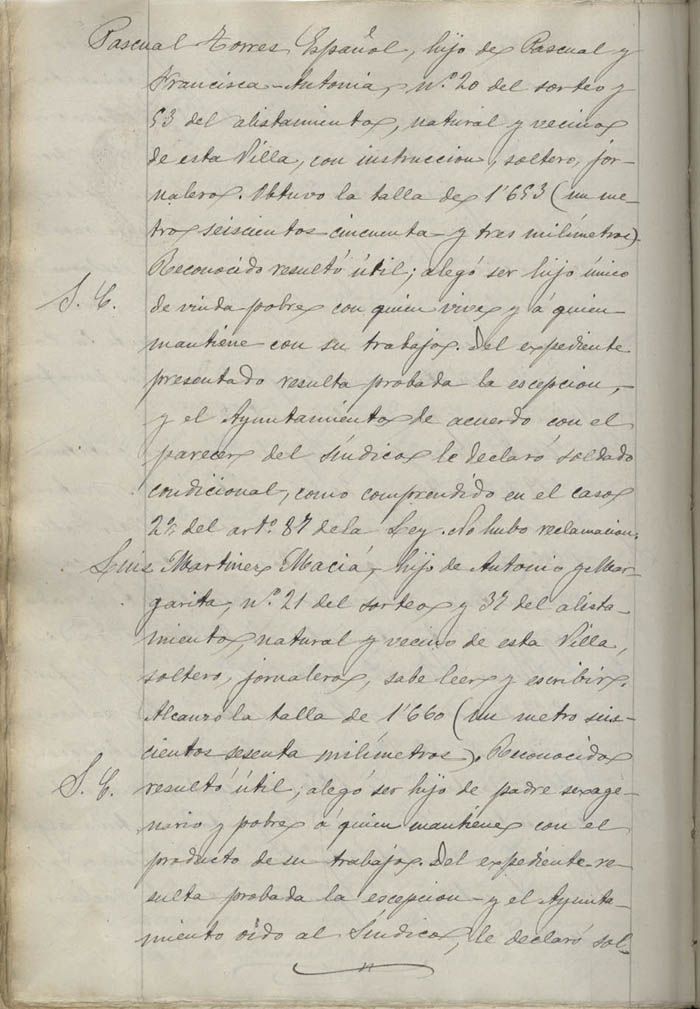 Pascual Torres Español, hijo de Pascual y
Francisca Antonia, n.º 20 del sorteo y
53 del alistamiento, natural y vecino
de esta Villa, con instruccion, soltero, jor-
nalero. Obtuvo la talla de 1'653 (un me-
tro seiscientos cincuenta y tres milímetros).
Reconocido resultó útil; alegó ser hijo único
S. C. de viuda pobre con quien vive y á quien
mantiene con su trabajo. Del expediente
presentado resulta probada la escepcion,
y el Ayuntamiento de acuerdo con el
parecer del Síndico le declaró soldado
condicional, como comprendido en el caso
2º. del artº. 87 de la Ley. No hubo reclamacion.
Luis Martinez Maciá, hijo de Antonio y Mar-
garita, n.º 21 del sorteo y 37 del alista-
miento, natural y vecino de esta Villa,
soltero, jornalero, sabe leer y escribir.
Alcanzó la talla de 1'660 (un metro seis-
cientos sesenta milímetros). Reconocido
S. C. resultó útil; alegó ser hijo de padre sexage-
nario y pobre á quien mantiene con el
producto de su trabajo. Del expediente re-
sulta probada la escepcion y el Ayunta-
miento oido al Síndico, le declaró sol-